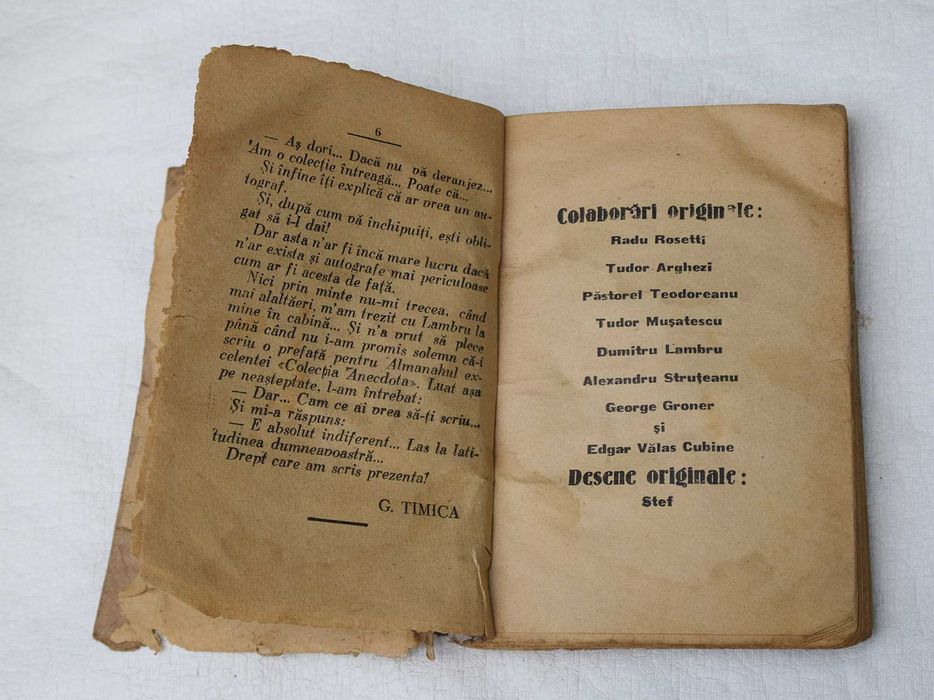 6
— Aş dori... Dacă nu vă deranjez...
'Am o colecţie întreagă... Poate că...
Şi înfine îţi explică că ar vrea un au-
tograf.
Şi, după cum vă închipuiţi, eşti obli-
gat să i-l dai!
Dar asta n'ar fi încă mare lucru dacă
n'ar exista şi autografe mai periculoase
cum ar fi acesta de faţă.
Nici prin minte nu-mi trecea, când
mai alaltăeri, m'am trezit cu Lambru la
mine în cabină... Şi n'a vrut să plece
până când nu i-am promis solemn că-i
scriu o prefaţă pentru 'Almanahul ex-
celentei «Colecţia 'Anecdota». Luat aşa
pe neaşteptate, l-am întrebat:
— Dar... Cam ce ai vrea să-ţi scriu...
Şi mi-a răspuns:
— E absolut indiferent... Las la lati-
tudinea dumneavoastră...
Drept care am scris prezenta!
G. TIMICA
Colaborări originale:
Radu Rosetti
Tudor Arghezi
Păstorel Teodoreanu
Tudor Muşatescu
Dumitru Lambru
Alexandru Struţeanu
George Groner
şi
Edgar Vălas Cubine
Desene originale:
Stef